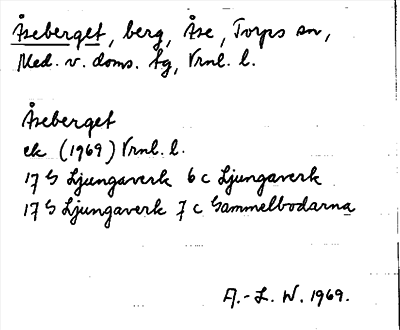 Åseberget, berg, Åse, Torps sn,
Med. v. doms. tg, Vrnl. l.
Åseberget
ek (1969) Vrnl. l.
17 G Ljungaverk 6 c Ljungaverk
17 G Ljungaverk 7 c Gammelbodarna
A.-L. W. 1969.